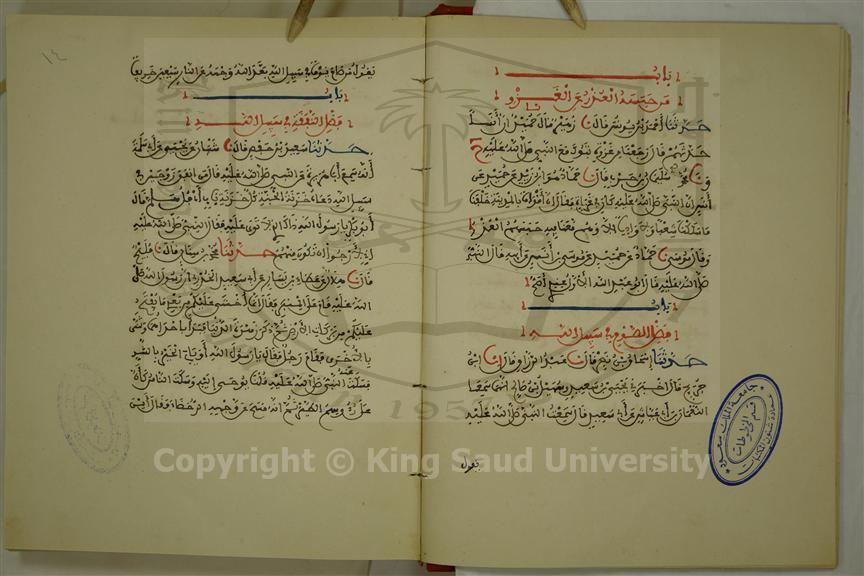 باب
من حبسه العذر عن الغزو
حدثنا أحمد بن يونس قال نا زهير قال نا حميد أن أنسا
حدثهم قال رجعنا من غزوة تبوك مع النبي صلى الله عليه ح
ونا سليمن بن حرب قال نا حماد هو ابن زيد عن حميد عن
أنس أن النبي صلى الله عليه كان في غزاة فقال إن أقواما بالمدينة خلفنا
ما سلكنا شعبا ولا واديا إلا وهم معنا فيه حبسهم العذر
وقال موسى نا حماد عن حميد عن موسى بن أنس عن أبيه قال النبي
صلى الله عليه قال أبو عبد الله الأول عندي أصح
باب
فضل الصوم في سبيل الله
حدثنا إسحاق بن نصر قال نا عبد الرزاق قال انا ابن
جريج قال أخبرني يحيى بن سعيد وسهيل بن أبي صالح أنهما سمعا
النعمان بن أبي عياش عن أبي سعيد قال سمعت النبي صلى الله عليه
يقول
١٤
يقول من صام يوما في سبيل الله بعد الله وجهه عن النار سبعين خريفا
باب
فضل النفقة في سبيل الله
حدثنا سعد بن حفص قال نا شيبان عن يحيى عن أبي سلمة
أنه سمع أبا هريرة عن النبي صلى الله عليه قال من أنفق زوجين في
سبيل الله دعاه خزنة الجنة كل خزنة باب أي فل هلم قال
أبو بكر يا رسول الله ذاك الذي لا توى عليه فقال النبي صلى الله عليه
إني لأرجو أن تكون منهم حدثنا محمد بن سنان قال نا فليح
قال نا هلال عن عطاء بن يسار عن أبي سعيد الخدري أن رسول الله صلى
الله عليه قام على المنبر فقال إنما أخشى عليكم من بعدي ما يفتح
عليكم من بركات الأرض ثم ذكر زهرة الدنيا فبدأ بإحداهما وثنى
بالأخرى فقام رجل فقال يا رسول الله أو يأتي الخير بالشر
فسكت عنه النبي صلى الله عليه قلنا يوحى إليه وسكت الناس كأن
على رءوسهم الطير ثم إنه مسح عن وجهه الرحضاء فقال أين
Copyright © King Saud University
1957
جامعة الملك سعود
عمادة شئون المكتبات
قسم المخطوطات